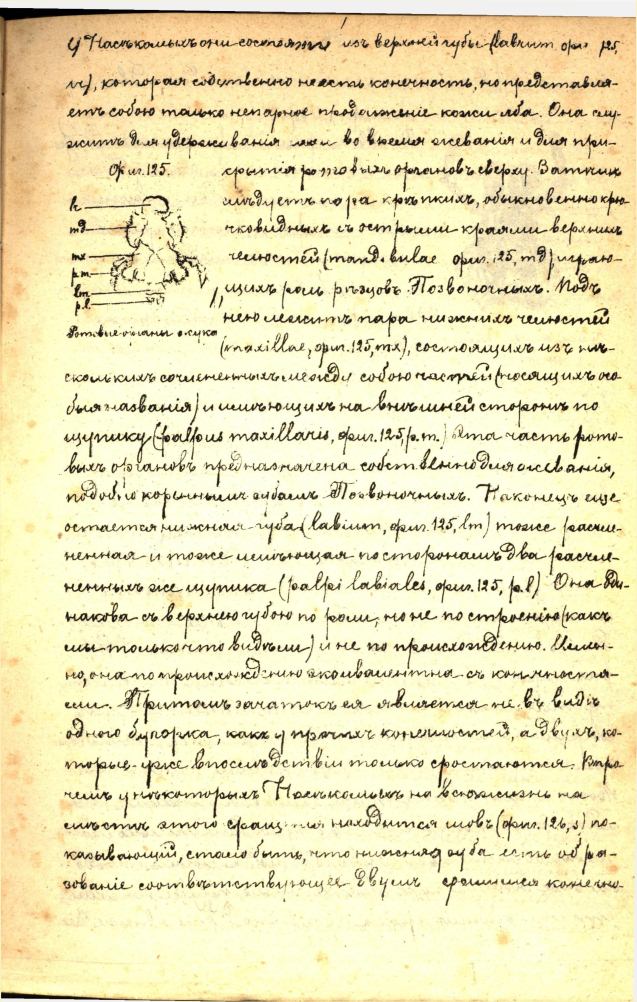 У Насѣкомыхъ они состоятъ изъ верхней губы (labrum, фиг. 125,
), которая собственно не есть конечность, но представля-
етъ собою только непарное продолженіе кожи лба. Она слу-
житъ для удерживанія пищи во время жеванія и для при-
Фиг. 125.
крытія ротовыхъ органовъ сверху. Затѣмъ
слѣдуетъ пара крѣпкихъ, обыкновенно крю-
чковидныхъ съ острыми краями верхнихъ
челюстей (mandibulae фиг. 125, md) играю-
щихъ роль рѣзцовъ Позвоночныхъ. Подъ
нею лежитъ пара нижнихъ челюстей
(maxillae, фиг. 125, mx), состоящихъ изъ нѣ-
h
md
mx
p.m
lm
p.l
Ротовые органы жука
сколькихъ сочлененныхъ между собою частей (носящихъ осо-
быя названія) и имѣющихъ на внѣшней сторонѣ по
щупику (palpus maxillaris, фиг. 125, p.m.) Эта часть рото-
выхъ органовъ предназначена собственно для жеванія,
подобно кореннымъ зубамъ Позвоночныхъ. Наконецъ еще
остается нижняя губа (labium, фиг. 125, lm) тоже расчле-
ненная и тоже имѣющая по сторонамъ два расчле-
ненныхъ же щупика (palpi labiales, фиг. 125, p.l) Она оди-
накова съ верхнею губою по роли, но не по строенію (какъ
мы только что видѣли) и не по происхожденію. Имен-
но, она по происхожденію эквивалентна съ конечностя-
ми. Притомъ зачатокъ ея является не въ видѣ
одного бугорка, какъ у прочихъ конечностей, а двухъ, ко-
торые уже впослѣдствіи только сростаются. Впро-
чемъ у нѣкоторыхъ Насѣкомыхъ на всю жизнь на
мѣстѣ этого сращенія находится шовъ (фиг. 126, s) по-
казывающій, стало быть, что нижняя губа есть обра-
зованіе соотвѣтствующее двумъ сросшимся конечно-